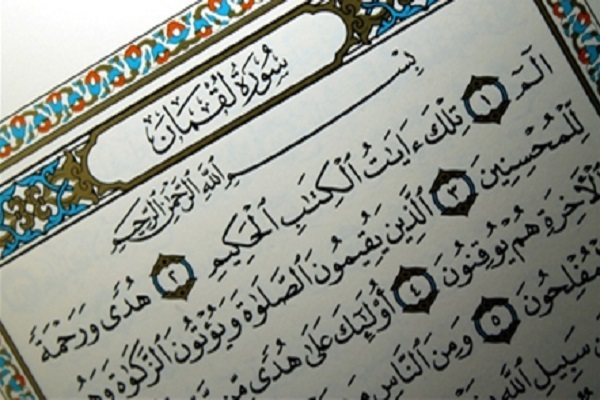 سُورَةُ لُقْمَانَ
بِسْمِ ٱللَّهِ ٱلرَّحْمَٰنِ ٱلرَّحِيمِ
الٓمٓ ١ تِلْكَ ءَايَٰتُ ٱلْكِتَٰبِ ٱلْحَكِيمِ ٢ هُدًى وَرَحْمَةً
لِّلْمُحْسِنِينَ ٣ ٱلَّذِينَ يُقِيمُونَ ٱلصَّلَوٰةَ وَيُؤْتُونَ ٱلزَّكَوٰةَ
ٱلْأَخِرَةِ هُمْ يُوقِنُونَ ٤ أُو۟لَٰٓئِكَ عَلَىٰ هُدًى مِّن
مُفْلِحُونَ ٥ وَمِنَ ٱلنَّاسِ
سَبِيلِ ٱللَّهِ